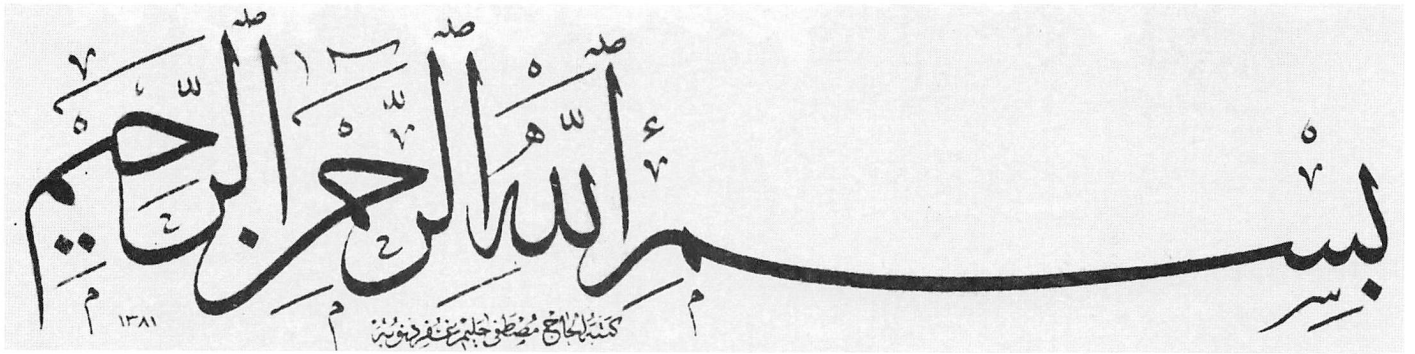 بِسْمِ ٱللَّهِ ٱلرَّحْمَٰنِ ٱلرَّحِيمِ
كتبه الحاج مصطفى حليم غفر ذنوبه
١٣٨١